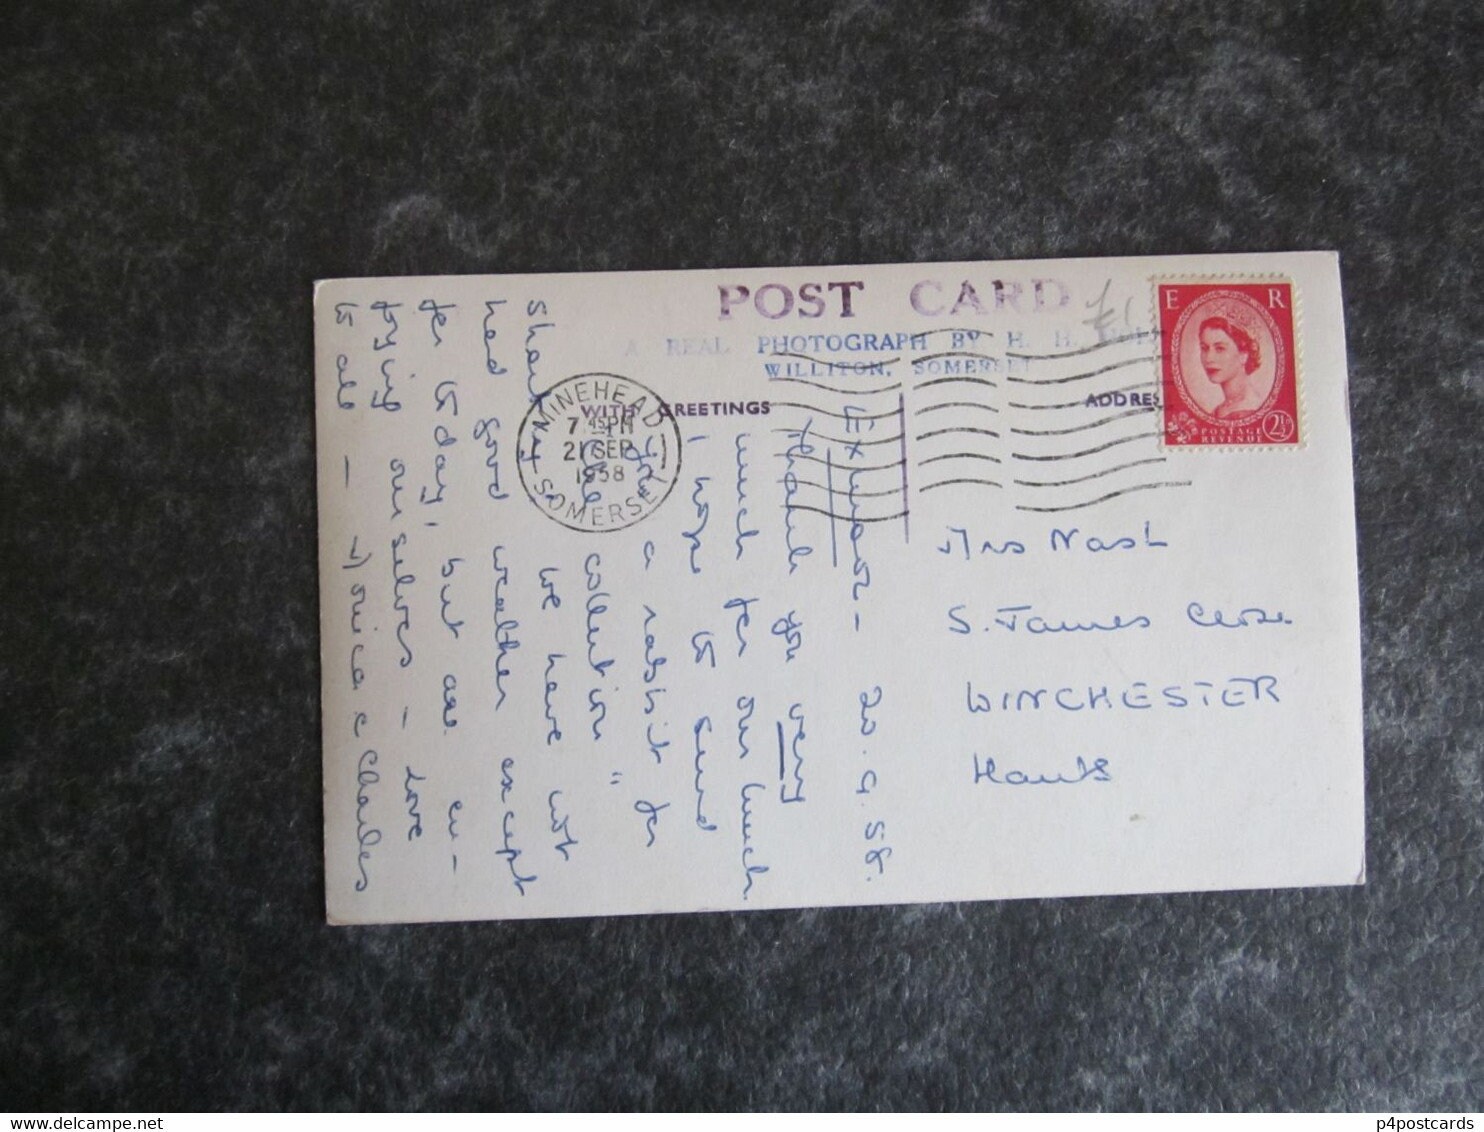 POST CARD
£1
E R
A REAL PHOTOGRAPH BY H. H.
WILLITON, SOMERSET
WITH GREETINGS
ADDRES
MINEHEAD
7.45PM
21 SEP
1958
SOMERSET
POSTAGE
REVENUE
2½
Exmoor - 20.9.58.
Thank you very
much for our lunch
I hope to send
you a rabbit for
the collection "
shortly. We have not
had good weather except
for to day, but are en-
joying ourselves - love
to all - Monica & Charles
Mrs Nash
S. James Close
WINCHESTER
Hants
p4postcards